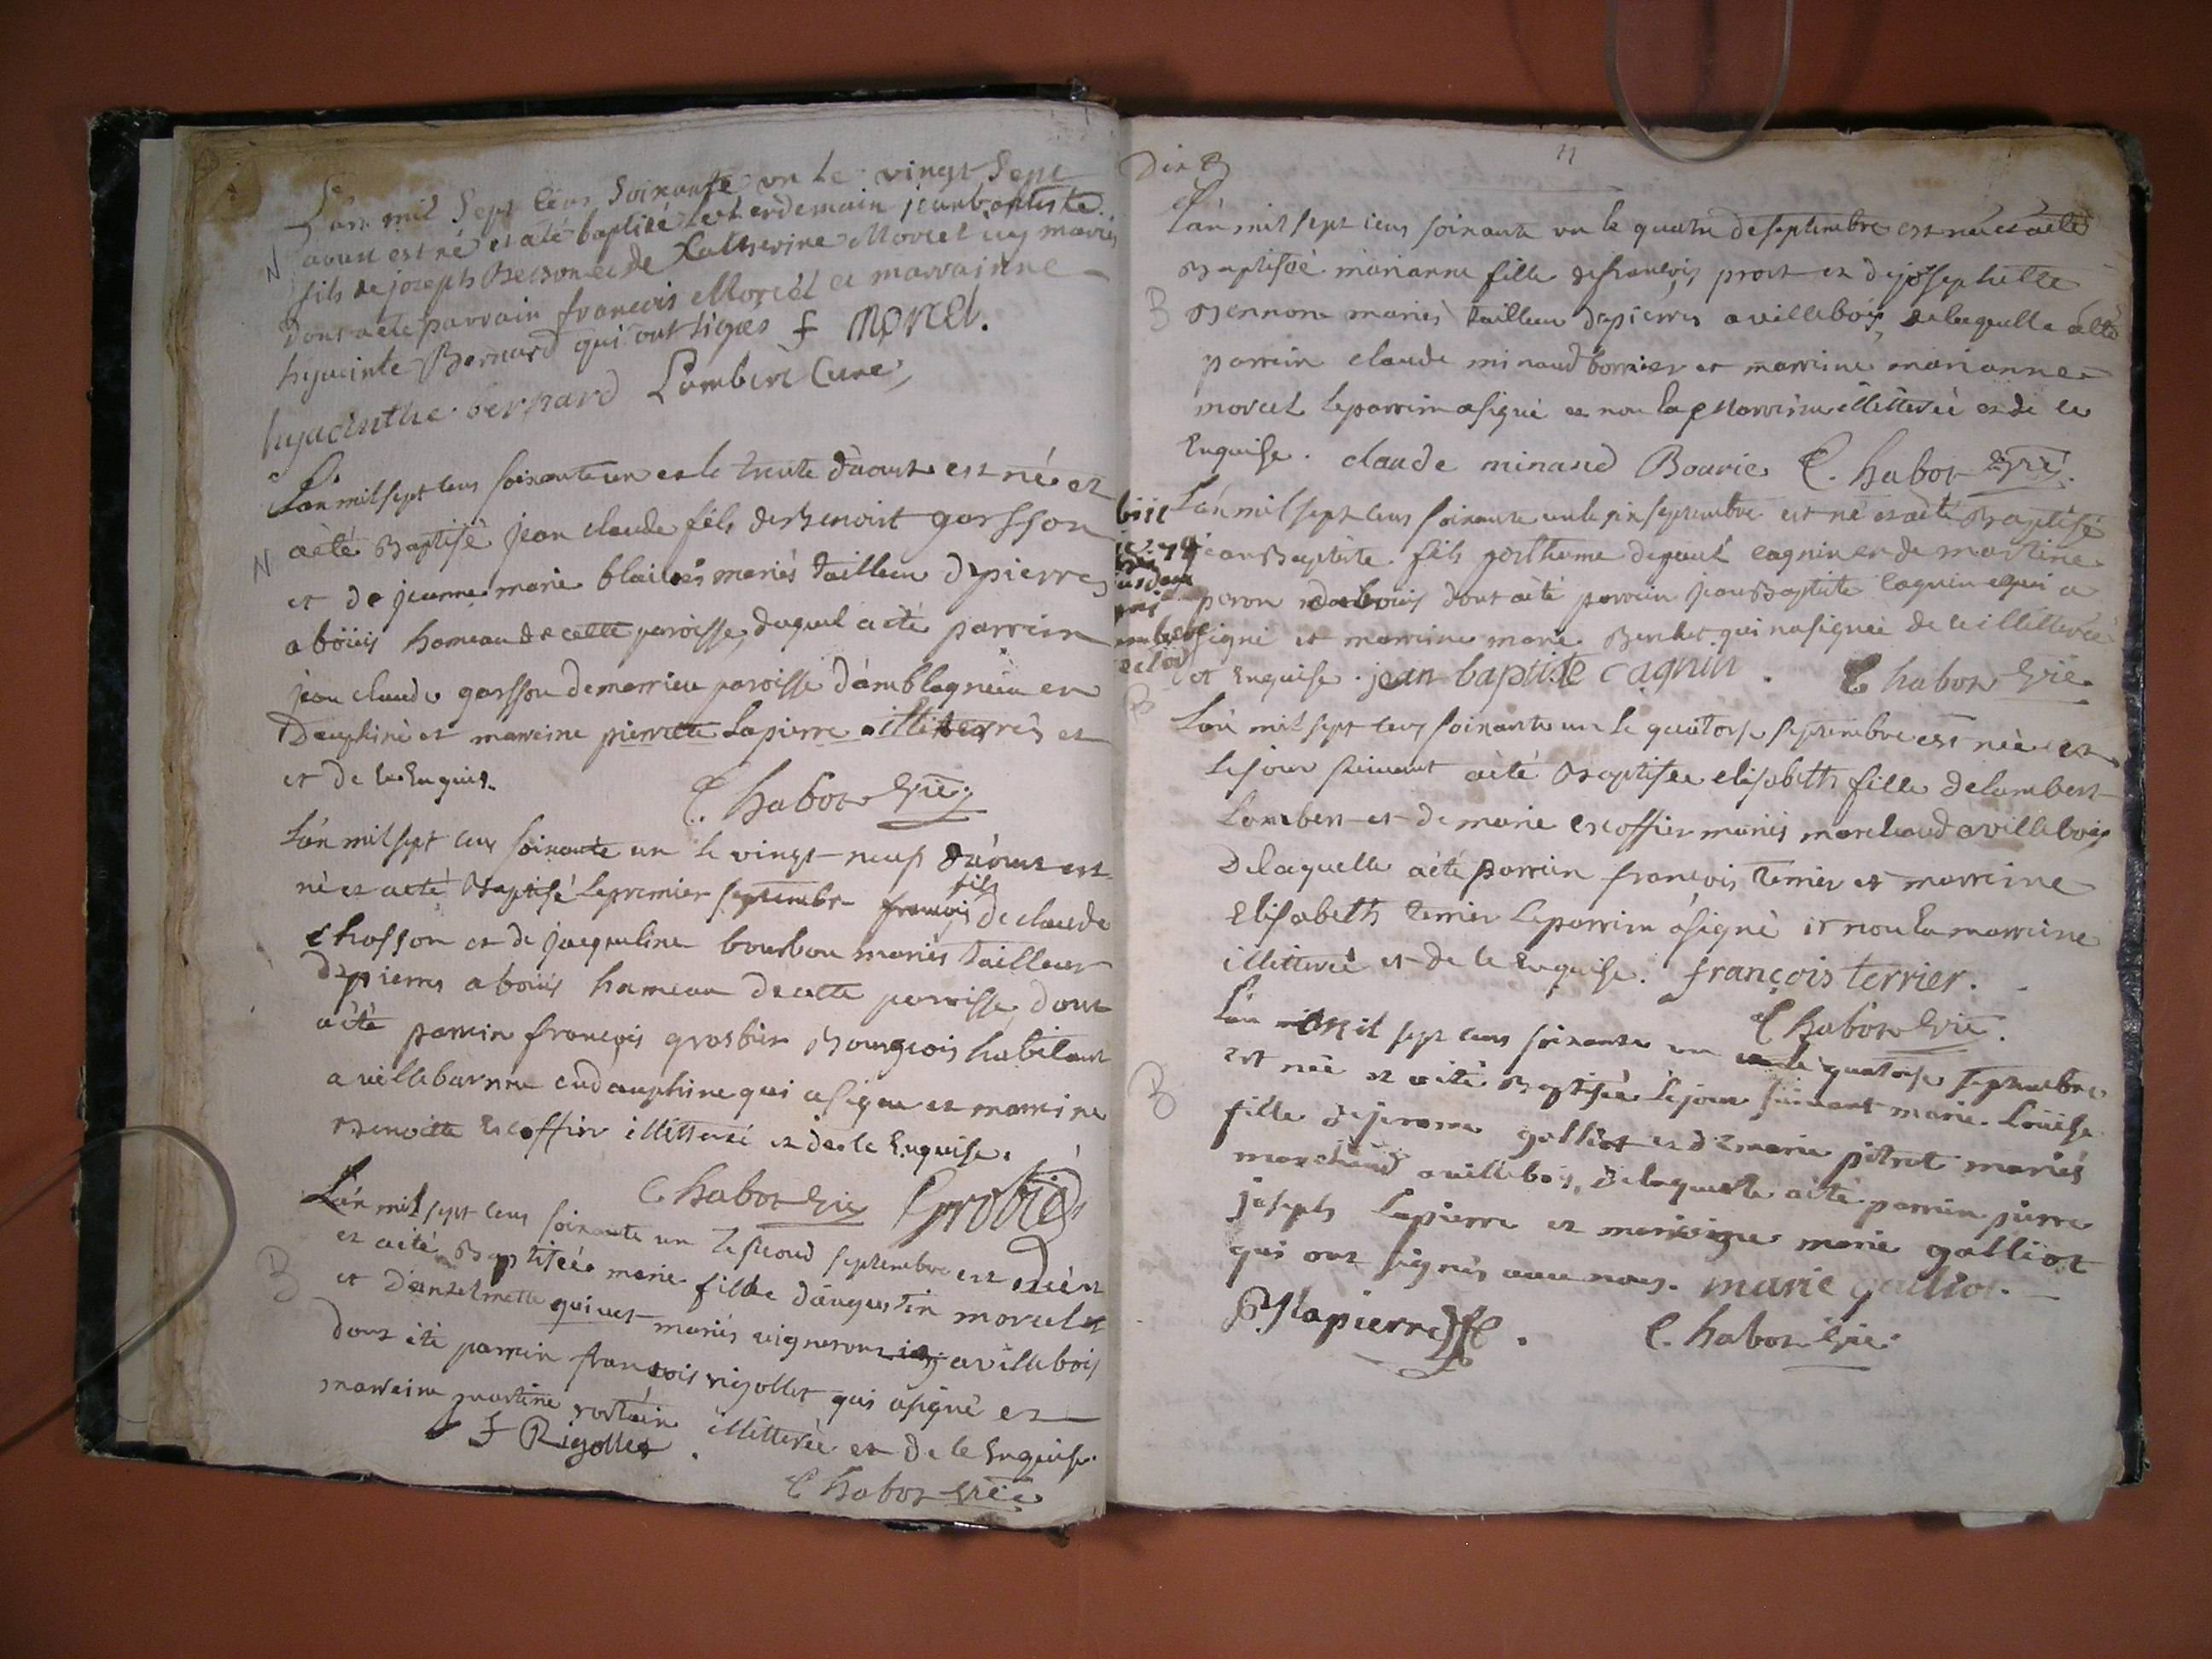 L'an mil Sept Cens Soixante un Le vingt Sept
aoust est né et a été baptisé le lendemain jean baptiste
fils de joseph et de Katherine Morcel mariés
dont a été parrain francois Morcel et marrainne
hyacinte Bernard qui ont signés f morcel.
hyacinthe bernard Lambert Curé
L'an mil sept cens soixante un et le trente d'aoust est né et
a été Baptisé jean claude fils de Benoist gassson
et de jeanne marie mariés tailleur de pierres
a boüis hameau de cette paroisse, duquel a été parrin
jean claude gassson de marrieu paroisse d'amblagnieu en
Dauphiné et marreine pierrette Lapierre illiterrés et
et de le Enquis.
Chabot Vic
L'an mil sept cens soixante un le vingt neuf d'aoust est
né et a été Baptisé le premier septembre françois fils de claude
Chosson et de jacqueline bourbon mariés tailleur
de pierres a bouis hameau de cette parroisse, dont
a été parrein françois grosbier Bourgeois habitant
a villebaronne en dauphine qui a signé et marreine
Benoitte Escoffier illitteré et de le Enquise.
Chabot Vic Grobiér
L'an mil sept cens soixante un le second septembre est née
et a été Baptiséé marie fille d'augustin morcel et
et d'anselmette mariés vignerons a villebois
dont été parrein françois rigollet qui a signé et
marreine martine illitterée et de le Enquise.
F Rigollet.
Chabot Vic
Dix
11
L'an mil sept cens soixante un le quatre de septembre est née et a été
Baptisée marianne fille de francois prost et de josephette
Bennone mariés tailleur de pierres a villebois, de laquelle a été
parrein claude minaud borrier et marreine marianne
morcel le parrein a signé et non la Marreine illitterée et de le
Enquise. claude minaud Bourié Chabot Vic.
L'an mil sept cens soixante un le six septembre est né et a été Baptisé
jean Baptiste fils posthume de paul cagnin et de martine
peron de bouis dont a été parrein jean Baptiste cagnin qui a
signé et marreine marie Berchet qui n'a signée de le illitterée
et Enquise. jean-baptiste cagnin. Chabot Vic.
L'an mil sept cens soixante un le quatorse septembre est née et
le jour suivant a été Baptisée elisabeth fille de lambert
Lambert et de marie escoffier mariés marchand a villebois
De laquelle a été parrein françois terrier et marreine
Elisabeth terrier le parrein a signé et non la marreine
illitterée et de le Enquise. françois terrier.
Chabot Vic.
L'an mil sept cens soixante un le quatorse septembre
est née et a été Baptisée le jour suivant marie-Loüise
fille de jerome galliot et de marie pitrat mariés
marchand a villebois, de laquelle a été parrein pierre
joseph Lapierre et marreine marie galliot
qui ont signés avec nous. marie galliot.
P Jlapierre. Chabot Vic.